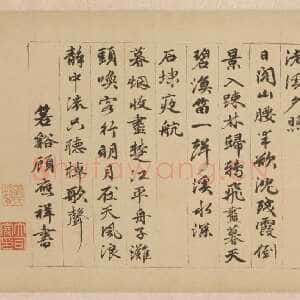 夕照
日閃山腰半欲沈殘霞倒
景入疎林歸鴉飛暮天
碧漁笛一聲溪水深
石埭夜航
暮烟收盡楚江平舟子灘
頭喚客行明月在天風浪
靜中流只聽棹歌聲
箬谿顧應祥書